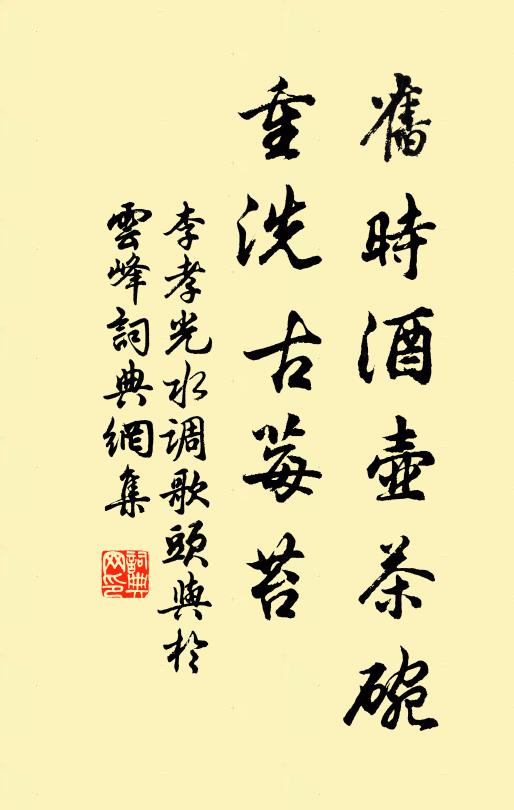 舊時酒壺茶碗
重洗古莓苔
李孝光水调歌頭與於
雲峰詞典網集
詞典
网印